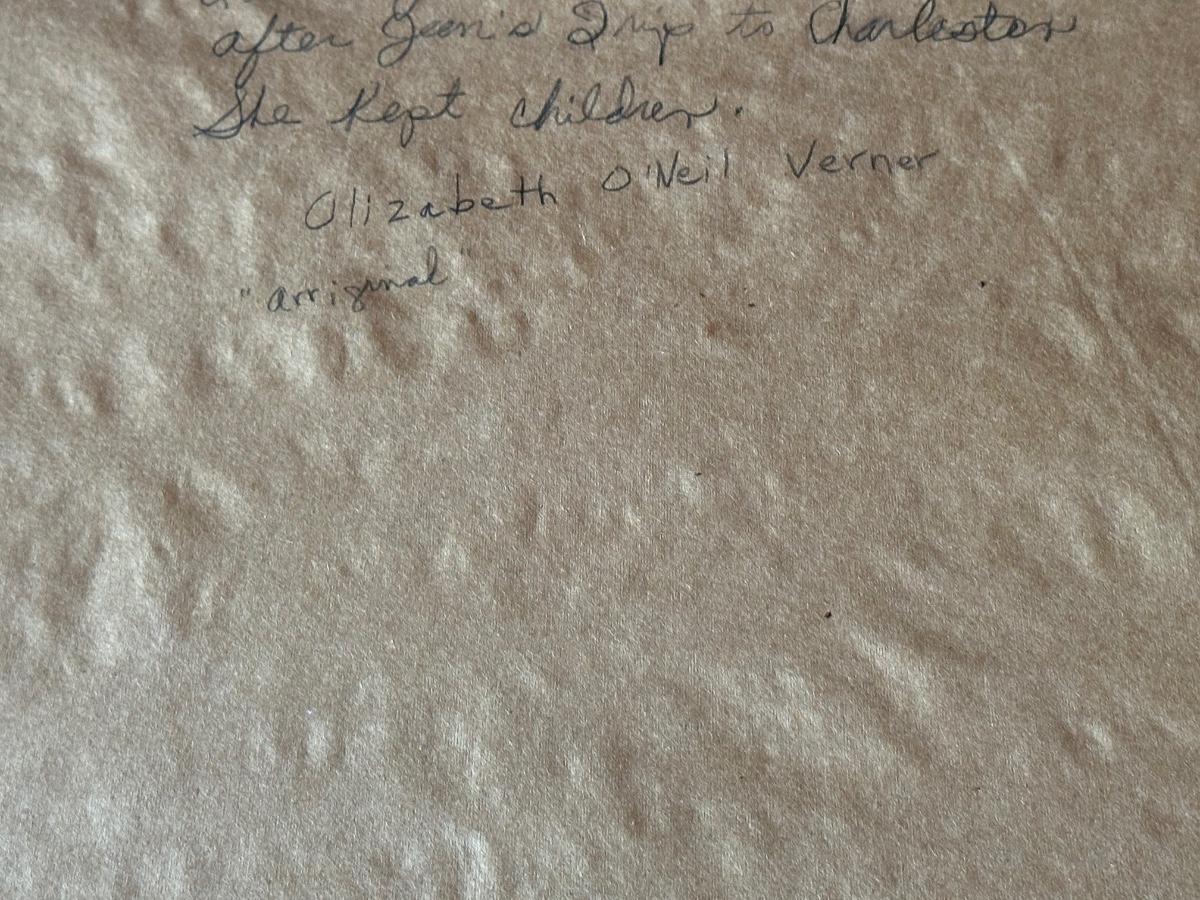 after Jean's Trip to Charleston
She Kept children.
Elizabeth O'Neil Verner
"arriginal"